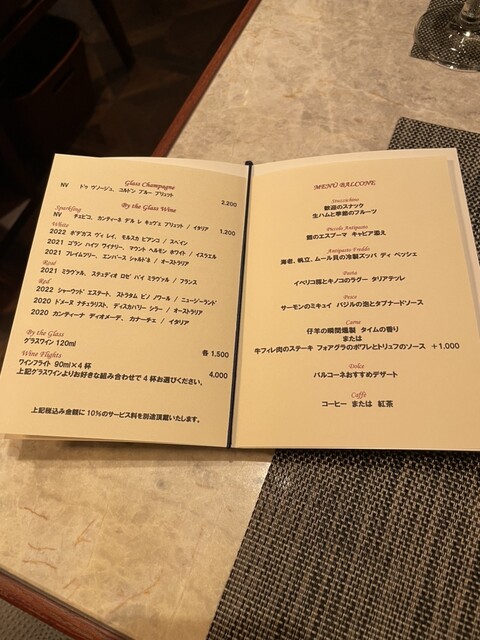 Glass Champagne
NV ドゥ ヴノージュ、コルドン ブルー ブリュット 2,200
By the Glass Wine
Sparkling
NV チェビコ、カンティーネ デル レ キュヴェ ブリュット / イタリア 1,200
White
2022 ボデガス ヴィ レイ、モルスカ ビアンコ / スペイン
2021 ゴラン ハイツ ワイナリー、マウント ヘルモン ホワイト / イスラエル
2021 フレムフリー、エンバース シャルドネ / オーストラリア
Rosé
2021 ミラヴァル、ステュディオ ロゼ バイ ミラヴァル / フランス
Red
2022 シャーウッド エステート、ストラタム ピノ ノワール / ニュージーランド
2020 ドメーヌ ナチュラリスト、ディスカバリー シラー / オーストラリア
2020 カンティーナ ディオメーデ、カナーチェ / イタリア
By the Glass
グラスワイン 120ml 各 1,500
Wine Flights
ワインフライト 90ml×4 杯 4,000
上記グラスワインよりお好きな組み合わせで 4 杯お選びください。
上記税込み金額に 10%のサービス料を別途頂戴いたします。
MENÚ BALCONE
Stuzzichino
歓迎のスナック
生ハムと季節のフルーツ
Piccolo Antipasto
蟹のエスプーマ キャビア添え
Antipasto Freddo
海老、帆立、ムール貝の冷製ズッパ ディ ペッシェ
Pasta
イベリコ豚とキノコのラグー タリアテッレ
Pesce
サーモンのミキュイ バジルの泡とタプナードソース
Carne
仔羊の瞬間燻製 タイムの香り
または
牛フィレ肉のステーキ フォアグラのポワレとトリュフのソース +1,000
Dolce
バルコーネおすすめデザート
Caffè
コーヒー または 紅茶